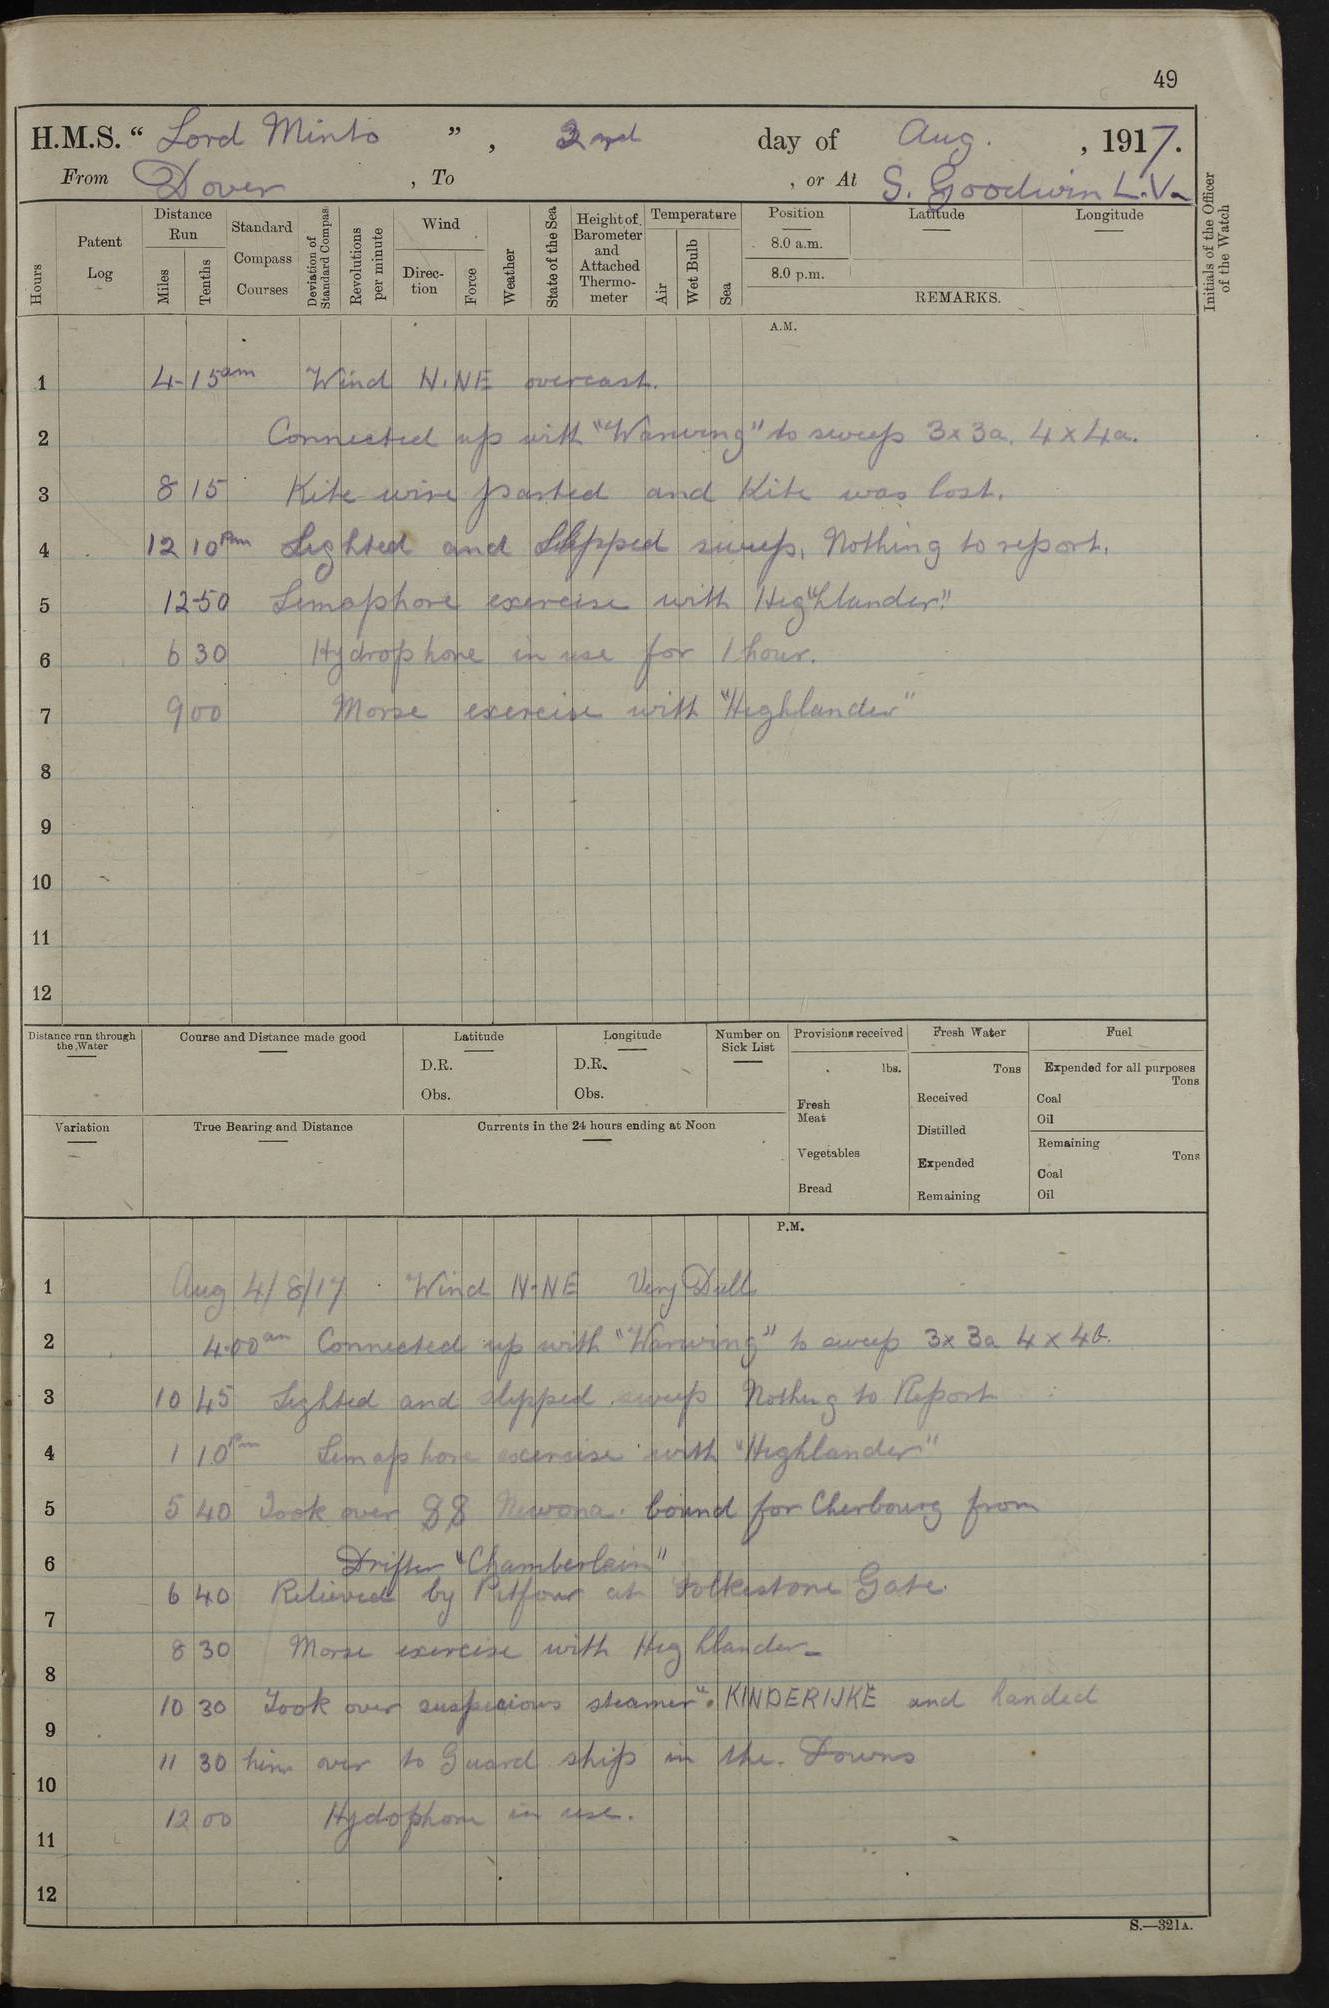 49
H.M.S. “ Lord Minto ” , 3rd day of Aug. , 1917.
From Dover , To , or At S. Goodwin L.V.
Hours
Patent Log
Distance Run
Miles
Tenths
Standard Compass Courses
Deviation of Standard Compass
Revolutions per minute
Wind
Direction
Force
Weather
State of the Sea
Height of Barometer and Attached Thermometer
Temperature
Air
Wet Bulb
Sea
Position
8.0 a.m.
8.0 p.m.
Latitude
Longitude
REMARKS.
Initials of the Officer of the Watch
A.M.
1 4-15am Wind N.NE overcast.
2 Connected up with "Warwing" to sweep 3x3a. 4x4a.
3 8 15 Kite wire parted and Kite was lost.
4 12 10pm Lighted and Slipped sweep, Nothing to report.
5 12-50 Semaphore exercise with Hig"hlander."
6 6 30 Hydrophone in use for 1 hour.
7 9 00 Morse exercise with "Highlander"
8
9
10
11
12
Distance run through the Water
Course and Distance made good
Latitude
D.R.
Obs.
Longitude
D.R.
Obs.
Number on Sick List
Provisions received
lbs.
Fresh Meat
Vegetables
Bread
Fresh Water
Tons
Received
Distilled
Expended
Remaining
Fuel
Expended for all purposes
Tons
Coal
Oil
Remaining
Tons
Coal
Oil
Variation
True Bearing and Distance
Currents in the 24 hours ending at Noon
P.M.
1 Aug 4/8/17 Wind N-NE Very Dull
2 4.00am Connected up with "Warwing" to sweep 3x3a 4x4b.
3 10 45 Lighted and slipped sweep Nothing to Report
4 1 10pm Semaphore exercise with "Highlander"
5 5 40 Took over SS bound for Cherbourg from
6 Drifter "Chamberlain"
6 40 Relieved by Pitfour at Folkestone Gate.
7
8 30 Morse exercise with Highlander
8
10 30 Took over suspecious steamer ". KINDERIJKE and handed
9
11 30 him over to Guard ship in the. Downs
10
12 00 Hydophone in use.
11
12
S.—321A.